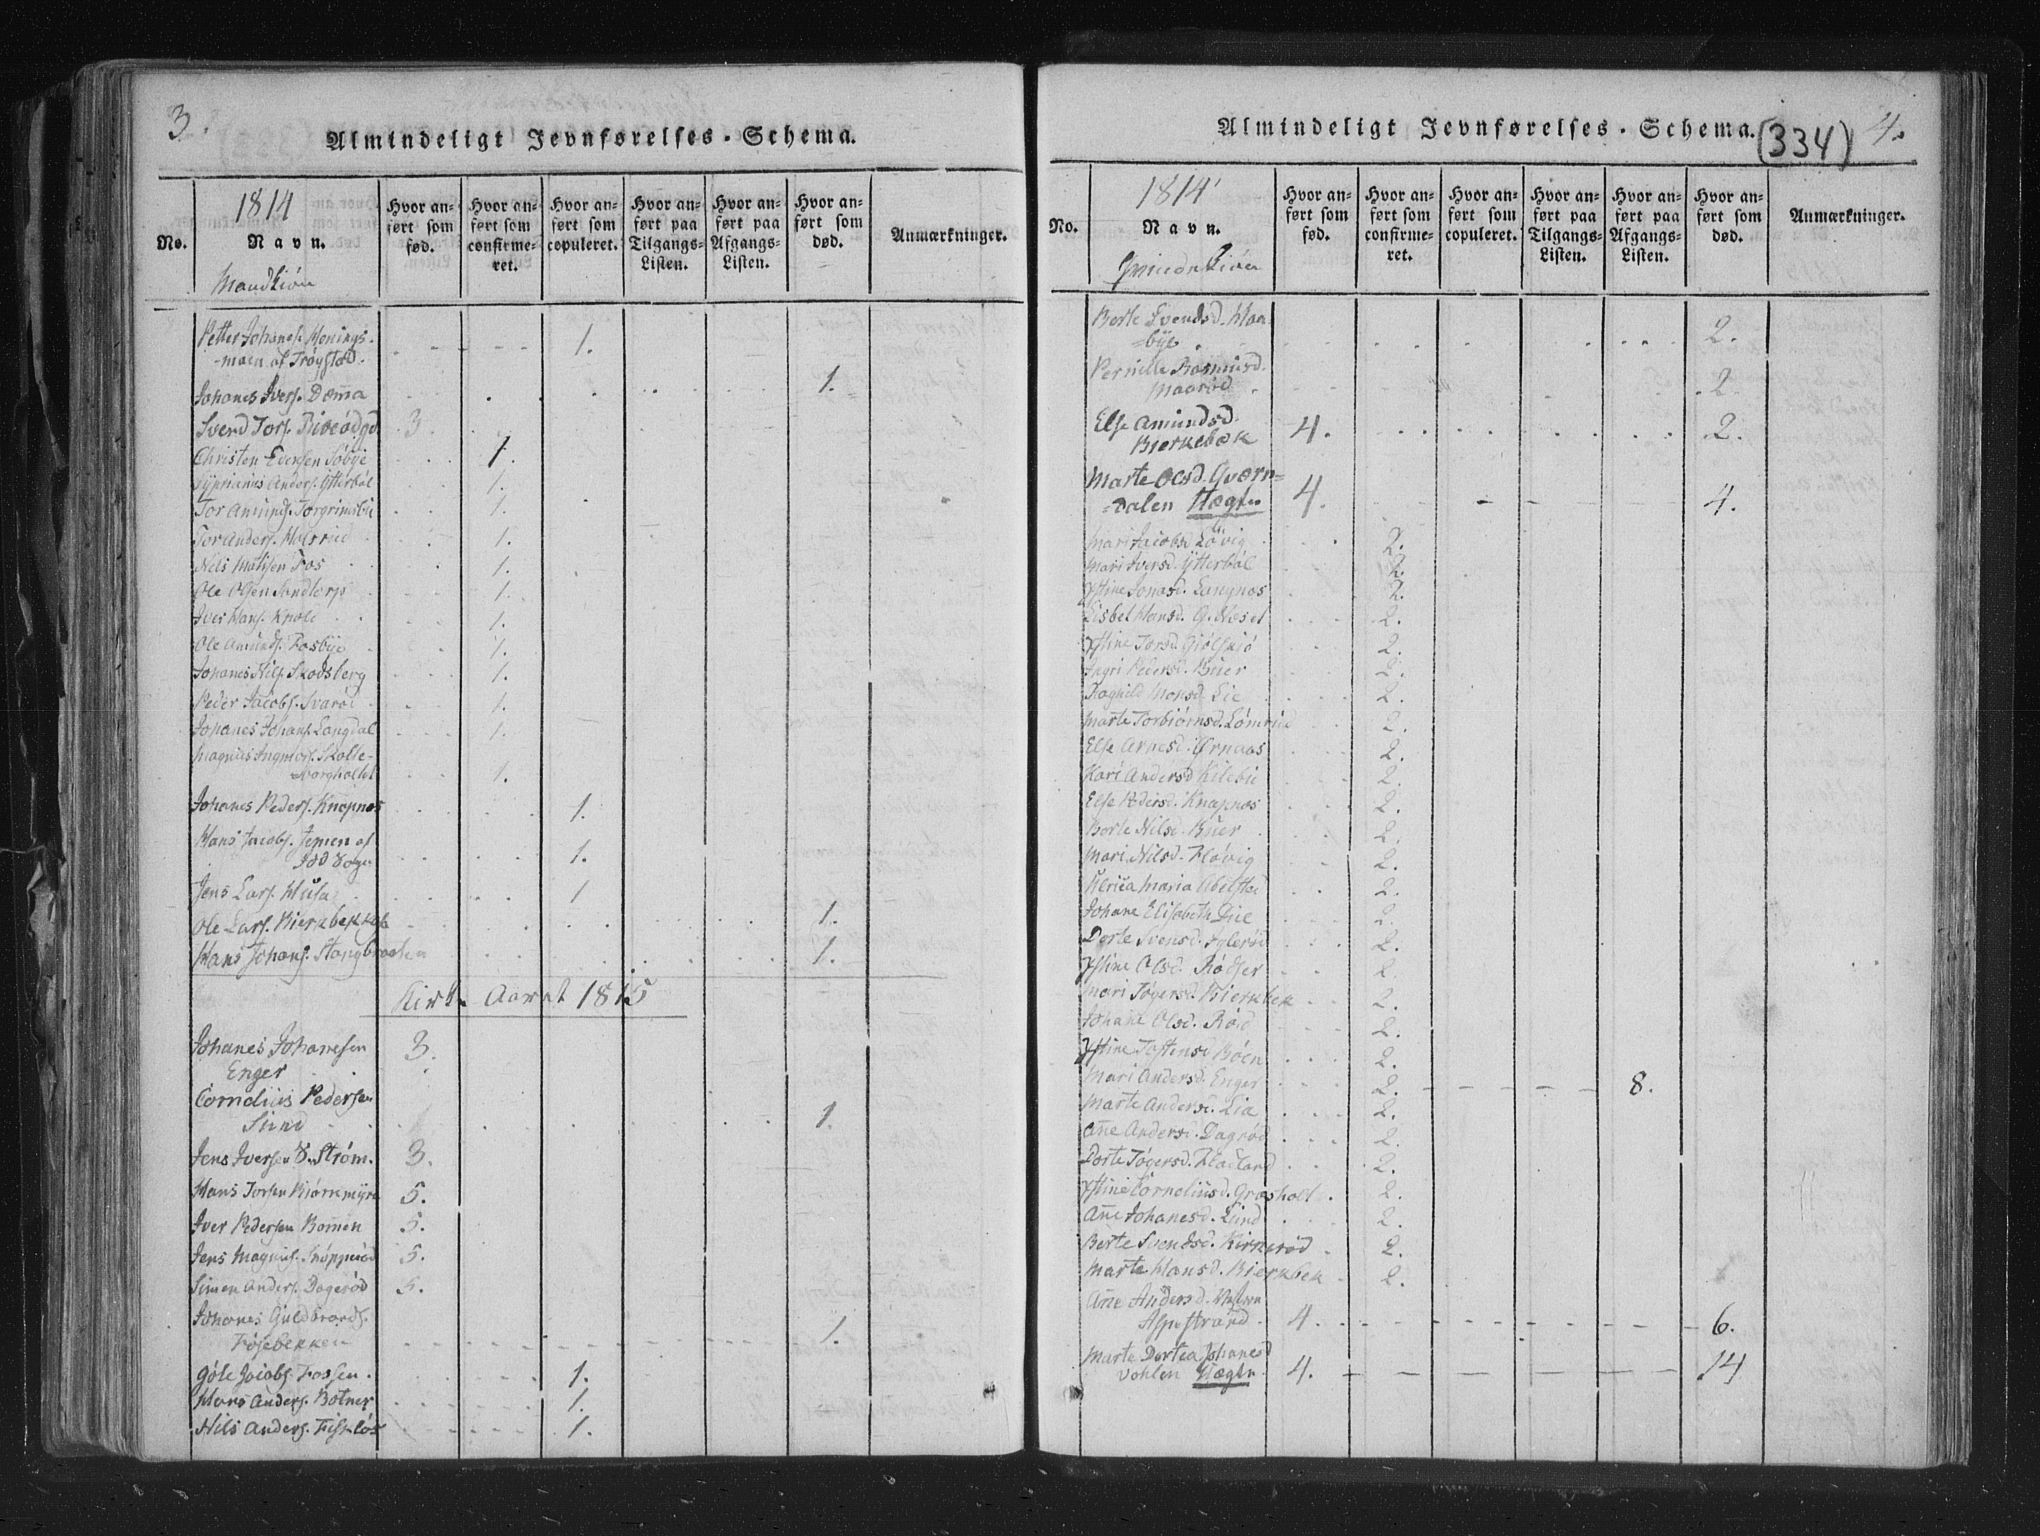 3.
Almindeligt Jevnførelses-Schema.
No.
1814
Navn.
Mandkiøn
Hvor anført som fød.
Hvor anført som confirmeret.
Hvor anført som copuleret.
Hvor anført paa Tilgangs-Listen.
Hvor anført paa Afgangs-Listen.
Hvor anført som død.
Anmærkninger.
Petter Johanes. Monings-
-moen af Trøgstad. 1.
Johanes Ivers. Dæm̄a 1.
Svend Tors. 3
Christen Evensen Søbye 1.
Cyprianus Anders. Ytterbøl 1.
Tor Amunds. Torgrimsbu 1.
Tor Anders. Holsrud 1.
Nils Matisen Fos 1.
Ole Olsen Sandtorp 1.
Iver Hans. Knole 1.
Ole Amunds. Fosbye 1.
Johanes Nils. Skodsberg 1.
Peder Jacobs. Svarød 1.
Johanes Johans. Langdal 1.
Magnus Ingmors. Skolle-
Borgholtet 1.
Johanes Peders. Knapnes 1.
Hans Jacobs. Jemen af
Idd Sogn 1.
Jens Lars. Husa 1
Ole Lars. Bierkbekkok 1.
Hans Johans. Stangbraaten 1.
Kirke Aaret 1815
Johanes Johanesen
Enger 3.
Cornelius Pedersen
Sund 1.
Jens Iversen S. Strøm. 3.
Hans Torsen Biørnmyra 5.
Iver Pedersen Bom̄en 5.
Jens Magnus. 5.
Simen Anders. Dagerød 5.
Johanes Guldbrands.
Fosebekken 1.
Gøle Jacobs. Fossen. 1.
Hans Anders. Botner 1.
Nils Anders. Fiskløs 1.
Almindeligt Jevnførelses-Schema.
(334)
4.
No.
1814
Navn.
Qvindekiøn
Hvor anført som fød.
Hvor anført som confirmeret.
Hvor anført som copuleret.
Hvor anført paa Tilgangs-Listen.
Hvor anført paa Afgangs-Listen.
Hvor anført som død.
Anmærkninger.
Berte Svendsd. Haa-
=bye. 2.
Pernille Rasmusd.
Maarød 2
Else Amundsd.
Bierkebæk 4. 2.
Marte Olsd. Qværn=
=dalen Hægn 4. 4.
Mari Jacobsd. Løvig 2.
Mari Iversd. Ytterbøl 2.
Kstine Jonasd. Langnæs 2.
Lisbet Hansd. G. Næset 2.
Kstine Torsd. Giølsiø 2.
Ingri Pedersd. Buer 2.
Ragnild Monsd. Lie 2.
Marte Torbiørnsd. Lømrud 2.
Else Arnesd. Ørnaas 2.
Kari Andersd. Kilebu 2.
Else Pedersd. Knapnæs 2.
Berte Nilsd. Buer 2.
Mari Nilsd. Fløvig 2.
Ulrica Maria Adelsted 2.
Johane Elisabeth Due 2.
Dorte Svensd. Iglerød 2.
Kstine Olsd. Rødser 2.
Mari Tøgersd. Bierkbek 2.
Johane Olsd. Rød 2.
Kstine Tostensd. Bøen 2.
Mari Andersd. Enger 2. 8.
Marte Andersd. Lia 2.
An̄e Andersd. Dagrød 2.
Dorte Tøgersd. Fladland 2.
Kstine Cornelius d. Græsholt 2.
An̄e Johanesd. Lund 2.
Berte Svendsd. Kirnerød 2.
Marte Hansd. Bierkbek 2.
An̄e Andersd.
Aspestrand 4. 6.
Marte Dortea Johanesd
vohlen Hægn 4. 14